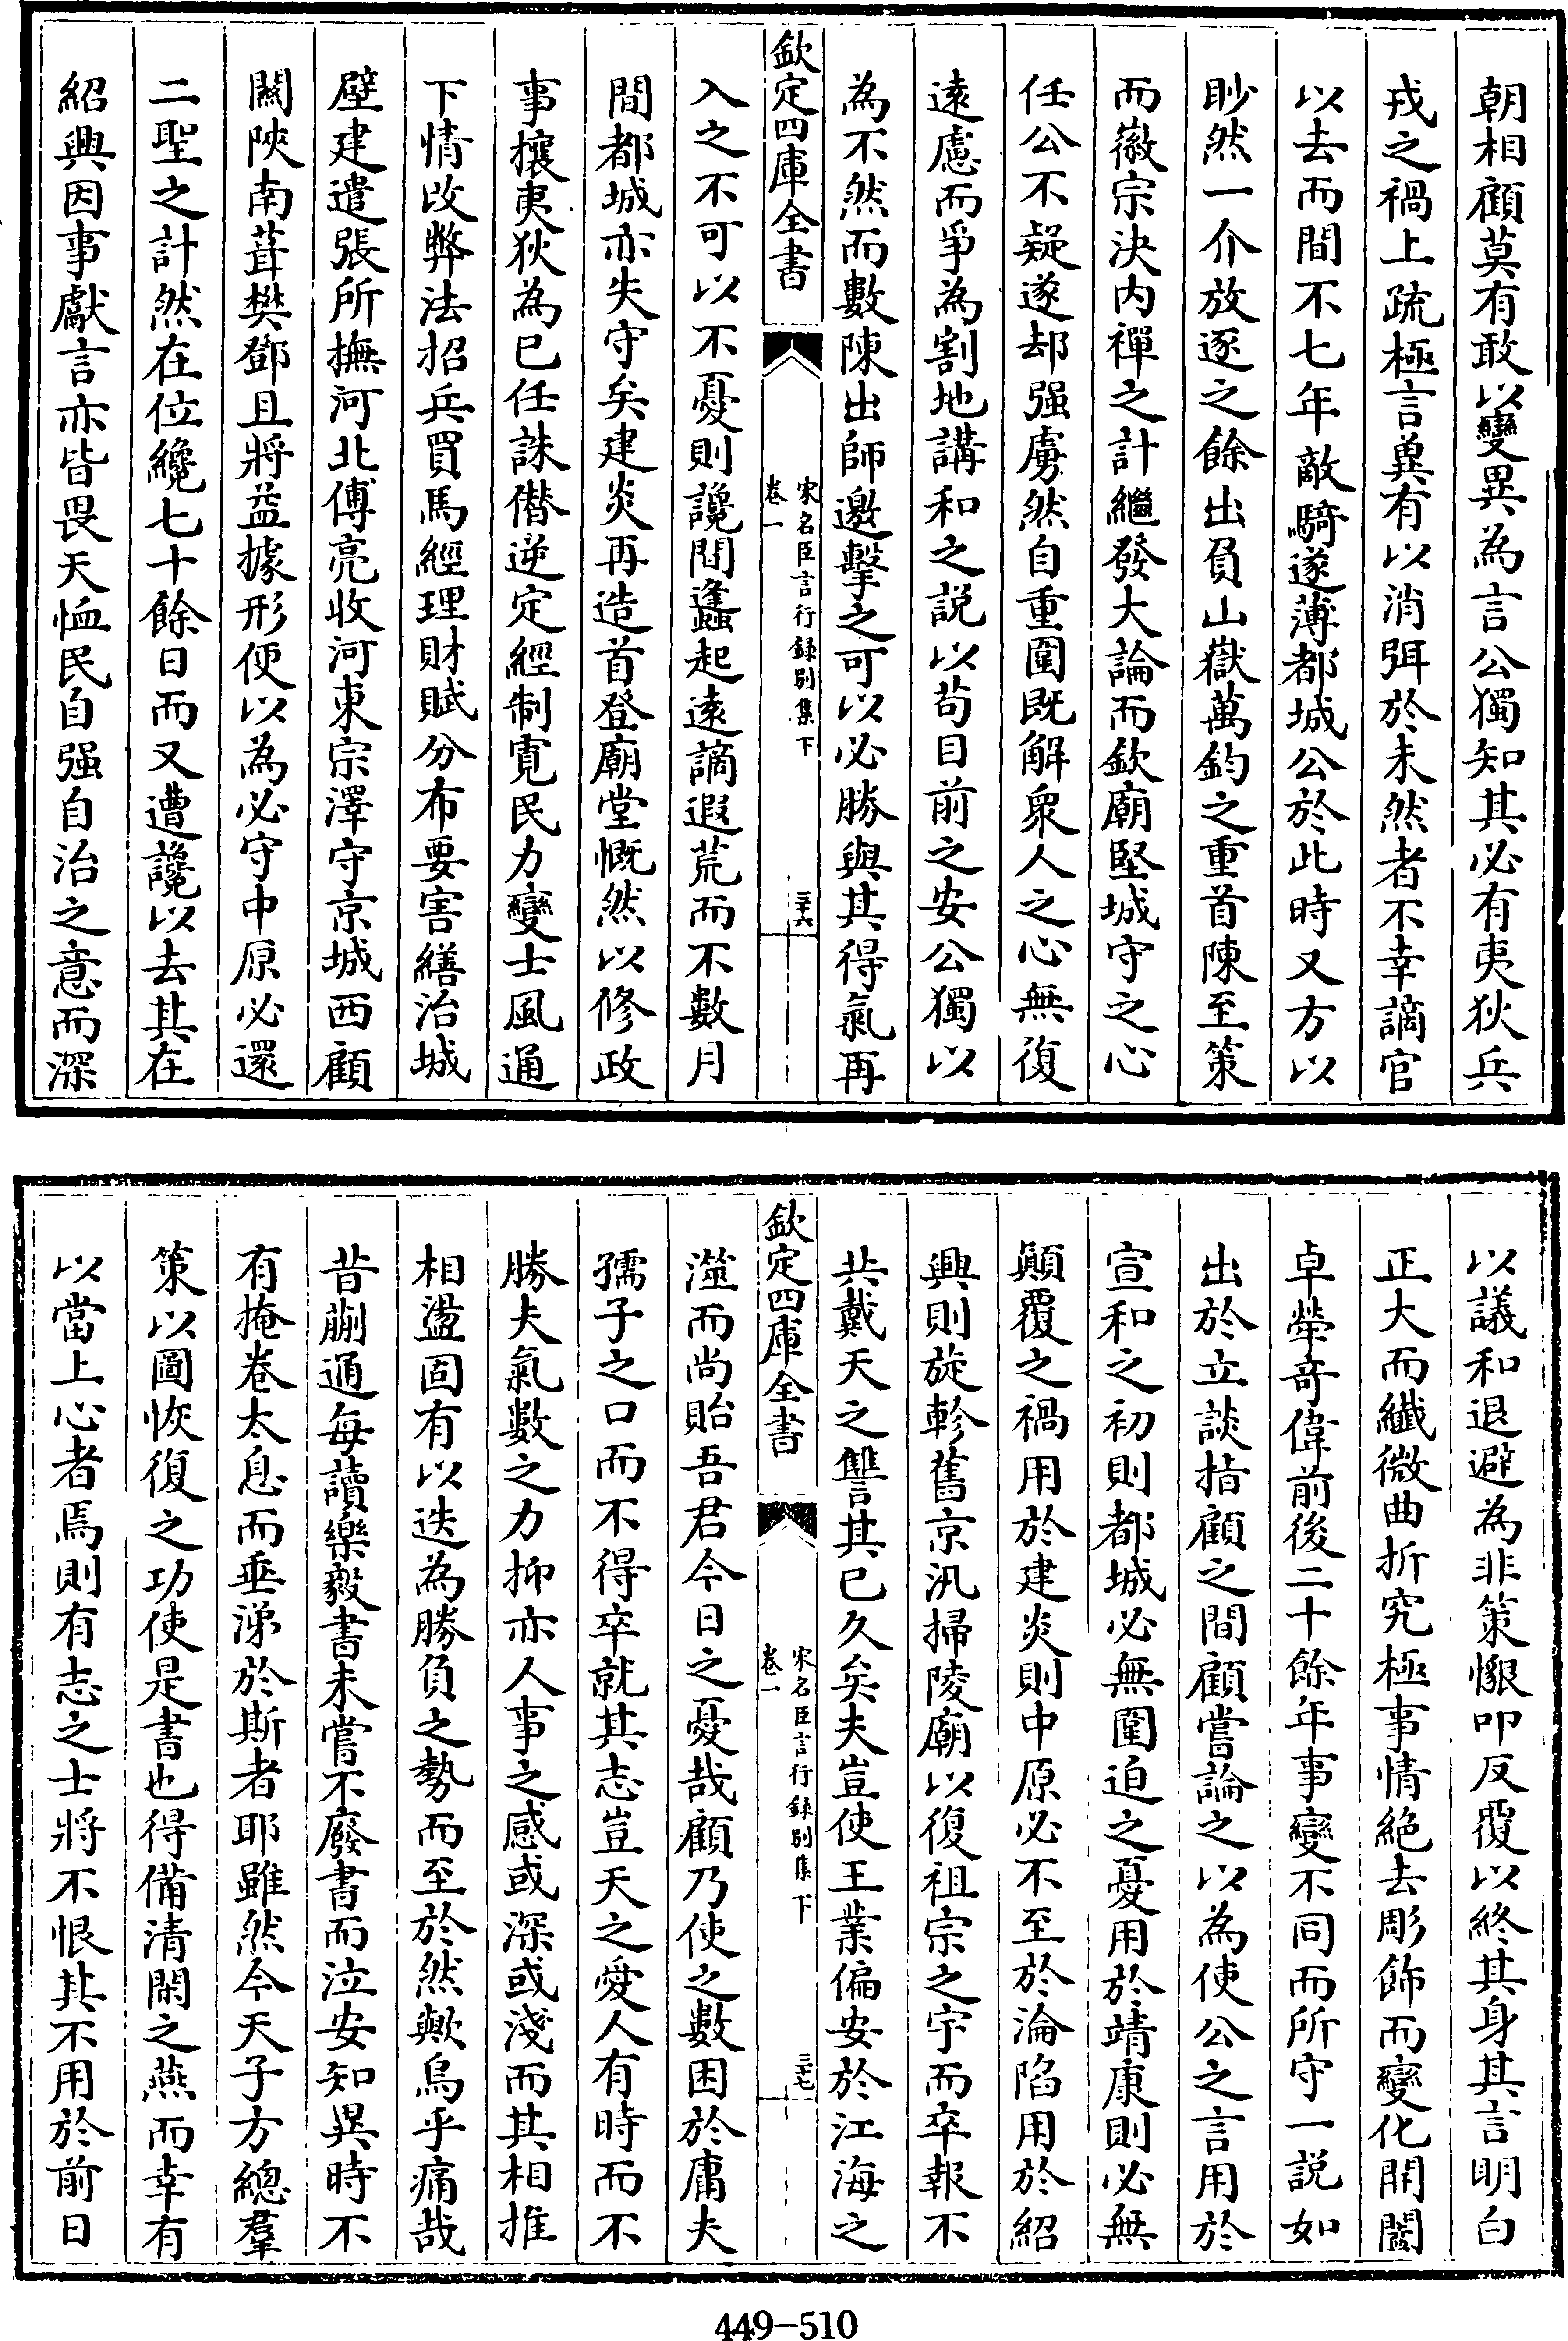 朝相顧莫有敢以變異為言公獨知其必有夷狄兵
戎之禍上疏極言冀有以消弭於未然者不幸謫官
以去而間不七年敵騎遂薄都城公於此時又方以
眇然一介放逐之餘出負山嶽萬鈞之重首陳至策
而徽宗決内禪之計繼發大論而欽廟堅城守之心
任公不疑遂却强虜然自重圍既解衆人之心無復
遠慮而爭為割地講和之説以苟目前之安公獨以
為不然而數陳出師邀擊之可以必勝與其得氣再
欽定四庫全書
宋名臣言行録别集下
卷一
三十六
入之不可以不憂則讒間蠭起遠謫遐荒而不數月
間都城亦失守矣建炎再造首登廟堂慨然以修政
事攘夷狄為已任誅僭逆定經制寛民力變士風通
下情改弊法招兵買馬經理財賦分布要害繕治城
壁建遣張所撫河北傅亮收河東宗澤守京城西顧
關陜南葺樊鄧且將益據形便以為必守中原必還
二聖之計然在位纔七十餘日而又遭讒以去其在
紹興因事獻言亦皆畏天恤民自强自治之意而深
以議和退避為非策懇叩反覆以終其身其言明白
正大而纖微曲折究極事情絶去彫飾而變化開闔
卓犖奇偉前後二十餘年事變不同而所守一説如
出於立談指顧之間顧嘗論之以為使公之言用於
宣和之初則都城必無圍迫之憂用於靖康則必無
顛覆之禍用於建炎則中原必不至於淪陷用於紹
興則旋軫舊京汛掃陵廟以復祖宗之宇而卒報不
共戴天之讐其已久矣夫豈使王業偏安於江海之
欽定四庫全書
宋名臣言行録别集下
卷一
三十七
澨而尚貽吾君今日之憂哉顧乃使之數困於庸夫
孺子之口而不得卒就其志豈天之愛人有時而不
勝夫氣數之力抑亦人事之感或深或淺而其相推
相盪固有以迭為勝負之勢而至於然歟烏乎痛哉
昔蒯通每讀樂毅書未嘗不廢書而泣安知異時不
有掩卷太息而垂涕於斯者耶雖然今天子方總羣
策以圖恢復之功使是書也得備清閒之燕而幸有
以當上心者焉則有志之士將不恨其不用於前日
449-510